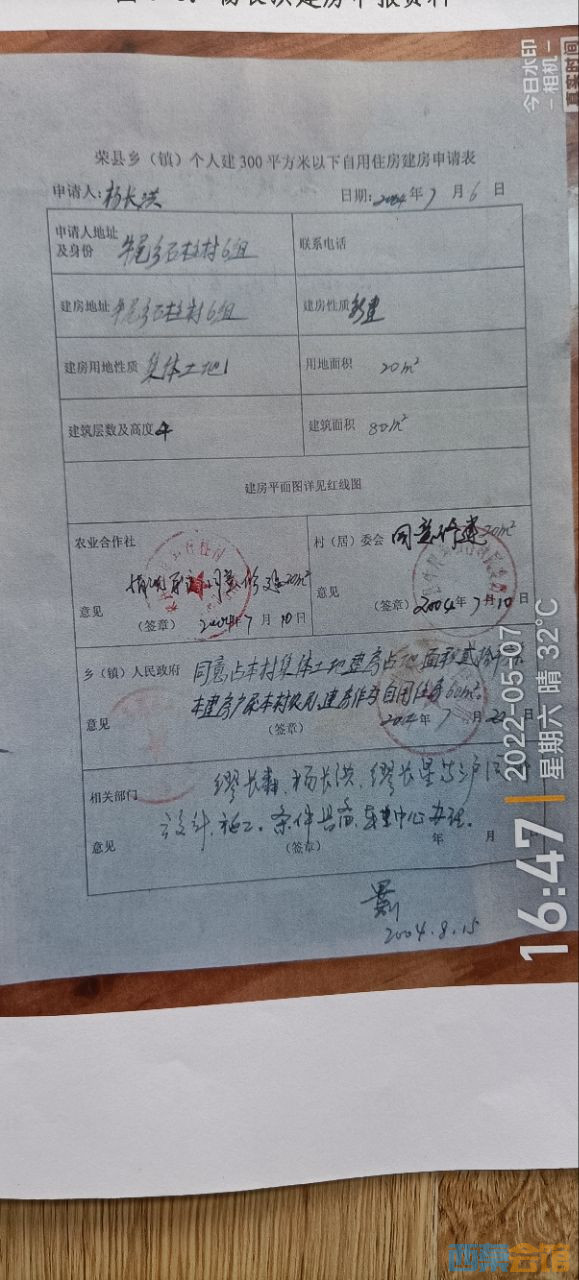 荣县乡（镇）个人建300平方米以下自用住房建房申请表
申请人：杨长洪 日期：2004年7月6日
申请人地址及身份 牛尾乡石柱村6组 联系电话
建房地址 牛尾乡石柱村6组 建房性质 新建
建房用地性质 集体土地 用地面积 20m²
建筑层数及高度 4 建筑面积 80m²
建房平面图详见红线图
农业合作社 村（居）委会 同意修建20m²
同意修建20m²
意见 意见
（签章） 2004年7月10日 （签章） 2004年7月10日
乡（镇）人民政府 同意占本村集体土地建房占地面积贰拾
本建房户系本村农民，建房作为自用住房
意见 （签章） 2004年7月22日
相关部门 缪长春、杨长洪、缪长星等三户
设计、施工。条件具备，中心办理。
意见 （签章） 年 月
2004.8.15
今日水印
-相机-
真实时间
16:47
2022-05-07
星期六 晴 32°C
西部会馆